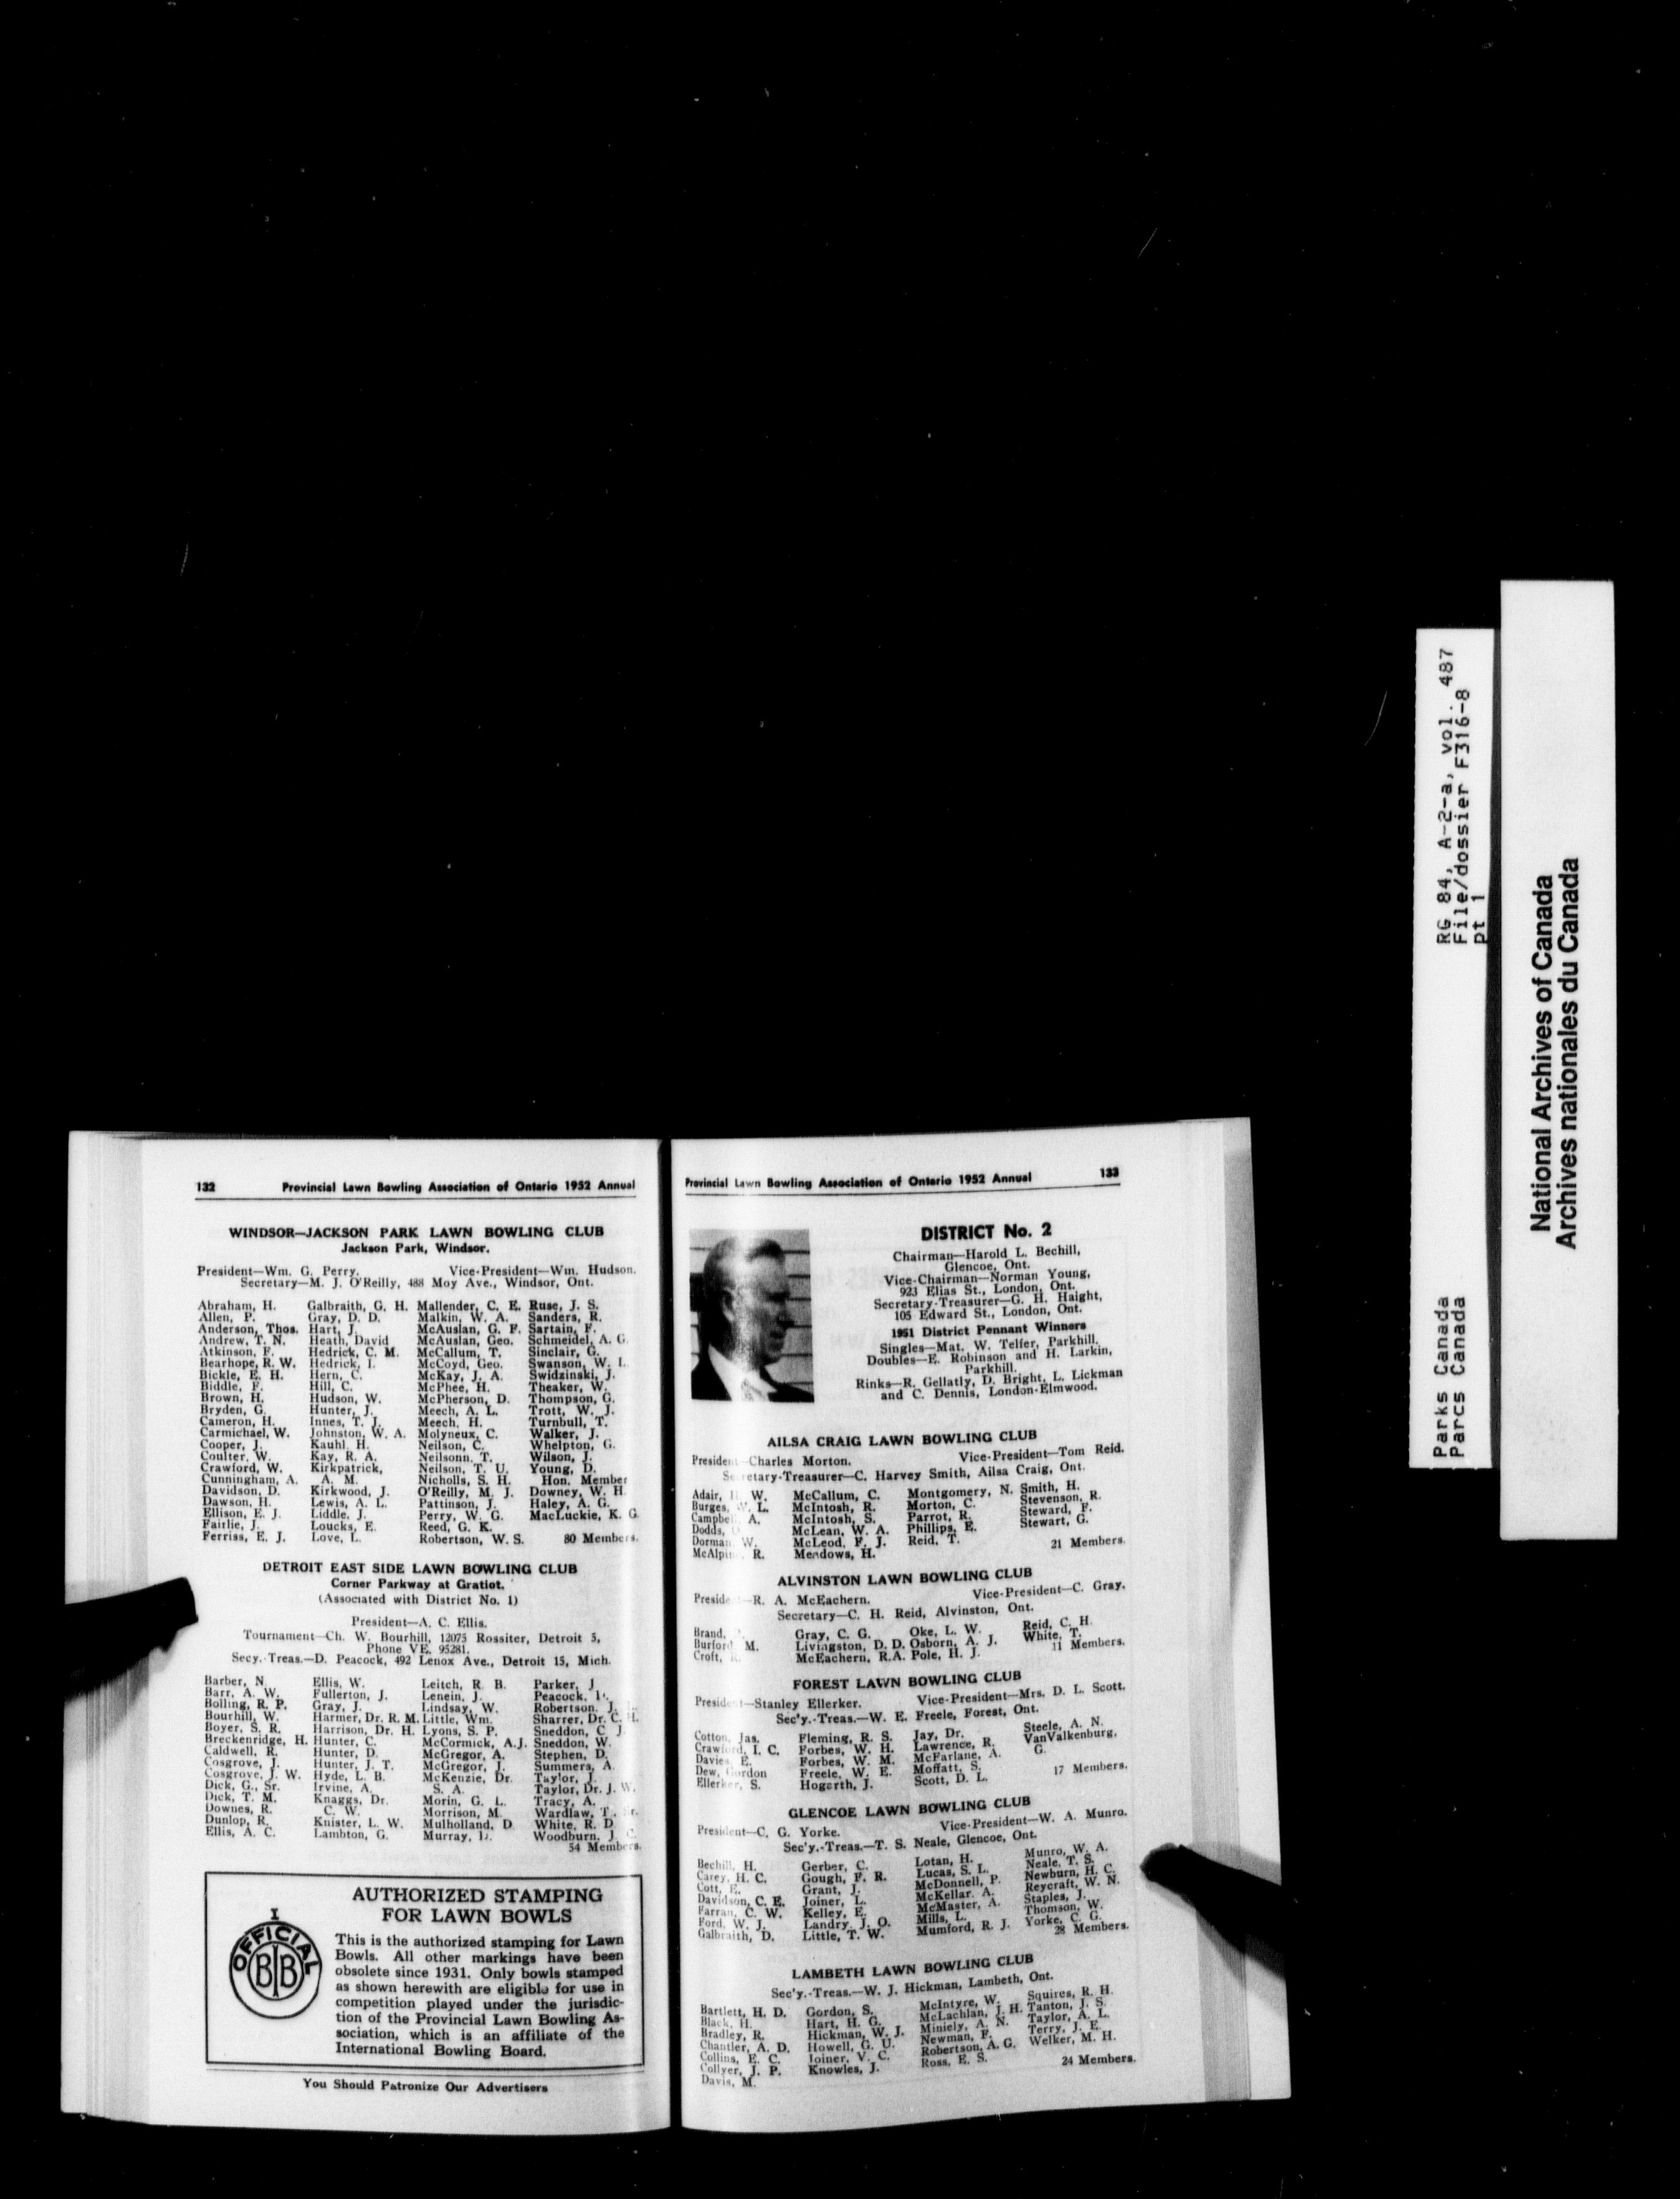 132 Provincial Lawn Bowling Association of Ontario 1952 Annual
WINDSOR—JACKSON PARK LAWN BOWLING CLUB
Jackson Park, Windsor.
President—Wm. G. Perry. Vice-President—Wm. Hudson.
Secretary—M. J. O'Reilly, 488 Moy Ave., Windsor, Ont.
Abraham, H. Galbraith, G. H. Mallender, C. E. Ruse, J. S.
Allen, P. Gray, D. D. Malkin, W. A. Sanders, R.
Anderson, Thos. Hart, J. McAuslan, G. F. Sartain, F.
Andrew, T. N. Heath, David McAuslan, Geo. Schmeidel, A. G.
Atkinson, F. Hedrick, C. M. McCallum, T. Sinclair, G.
Bearhope, R. W. Hedrick, I. McCoyd, Geo. Swanson, W. L.
Bickle, E. H. Hern, C. McKay, J. A. Swidzinski, J.
Biddle, F. Hill, C. McPhee, H. Theaker, W.
Brown, H. Hudson, W. McPherson, D. Thompson, G.
Bryden, G. Hunter, J. Meech, A. L. Trott, W. J.
Cameron, H. Innes, T. J. Meech, H. Turnbull, T.
Carmichael, W. Johnston, W. A. Molyneux, C. Walker, J.
Cooper, J. Kauhl, H. Neilson, C. Whelpton, G.
Coulter, W. Kay, R. A. Neilsonn, T. Wilson, J.
Crawford, W. Kirkpatrick, Neilson, T. U. Young, D.
Cunningham, A. A. M. Nicholls, S. H. Hon. Member
Davidson, D. Kirkwood, J. O'Reilly, M. J. Downey, W. H.
Dawson, H. Lewis, A. L. Pattinson, J. Haley, A. G.
Ellison, E. J. Liddle, J. Perry, W. G. MacLuckie, K. G.
Fairlie, J. Loucks, E. Reed, G. K.
Ferriss, E. J. Love, L. Robertson, W. S. 80 Members.
DETROIT EAST SIDE LAWN BOWLING CLUB
Corner Parkway at Gratiot.
(Associated with District No. 1)
President—A. C. Ellis.
Tournament—Ch. W. Bourhill, 12075 Rossiter, Detroit 5,
Phone VE. 95281.
Secy.-Treas.—D. Peacock, 492 Lenox Ave., Detroit 15, Mich.
Barber, N. Ellis, W. Leitch, R. B. Parker, J.
Barr, A. W. Fullerton, J. Lenein, J. Peacock,
Bolling, R. P. Gray, J. Lindsay, W. Robertson, J.
Bourhill, W. Harmer, Dr. R. M. Little, Wm. Sharrer, Dr. C. H.
Boyer, S. R. Harrison, Dr. H. Lyons, S. P. Sneddon, C. J.
Breckenridge, H. Hunter, C. McCormick, A.J. Sneddon, W.
Caldwell, R. Hunter, D. McGregor, A. Stephen, D.
Cosgrove, J. Hunter, J. T. McGregor, J. Summers, A.
Cosgrove, J. W. Hyde, L. B. McKenzie, Dr. Taylor, J.
Dick, G., Sr. Irvine, A. S. A. Taylor, Dr. J. W.
Dick, T. M. Knaggs, Dr. Morin, G. L. Tracy, A.
Downes, R. C. W. Morrison, M. Wardlaw, T.
Dunlop, R. Knister, L. W. Mulholland, D. White, R. D.
Ellis, A. C. Lambton, G. Murray, D. Woodburn, J. C.
54 Members.
AUTHORIZED STAMPING
FOR LAWN BOWLS
I
OFFICIAL
BIB
This is the authorized stamping for Lawn
Bowls. All other markings have been
obsolete since 1931. Only bowls stamped
as shown herewith are eligible for use in
competition played under the jurisdic-
tion of the Provincial Lawn Bowling As-
sociation, which is an affiliate of the
International Bowling Board.
You Should Patronize Our Advertisers
Provincial Lawn Bowling Association of Ontario 1952 Annual 133
DISTRICT No. 2
Chairman—Harold L. Bechill,
Glencoe, Ont.
Vice-Chairman—Norman Young,
923 Elias St., London, Ont.
Secretary-Treasurer—G. H. Haight,
105 Edward St., London, Ont.
1951 District Pennant Winners
Singles—Mat. W. Telfer, Parkhill.
Doubles—E. Robinson and H. Larkin,
Parkhill.
Rinks—R. Gellatly, D. Bright, L. Lickman
and C. Dennis, London-Elmwood.
AILSA CRAIG LAWN BOWLING CLUB
President—Charles Morton. Vice-President—Tom Reid.
Secretary-Treasurer—C. Harvey Smith, Ailsa Craig, Ont.
Adair, W. McCallum, C. Montgomery, N. Smith, H.
Burges, W. L. McIntosh, R. Morton, C. Stevenson, R.
Campbell, A. McIntosh, S. Parrot, R. Steward, F.
Dodds, McLean, W. A. Phillips, E. Stewart, G.
Dorman, W. McLeod, F. J. Reid, T.
McAlpine, R. Meadows, H. 21 Members.
ALVINSTON LAWN BOWLING CLUB
President—R. A. McEachern. Vice-President—C. Gray.
Secretary—C. H. Reid, Alvinston, Ont.
Brand, Gray, C. G. Oke, L. W. Reid, C. H.
Burford, M. Livingston, D. D. Osborn, A. J. White, T.
Croft, McEachern, R.A. Pole, H. J. 11 Members.
FOREST LAWN BOWLING CLUB
President—Stanley Ellerker. Vice-President—Mrs. D. L. Scott.
Sec'y.-Treas.—W. E. Freele, Forest, Ont.
Cotton, Jas. Fleming, R. S. Jay, Dr. Steele, A. N.
Crawford, I. C. Forbes, W. H. Lawrence, R. VanValkenburg,
Davies, E. Forbes, W. M. McFarlane, A. G.
Dew, Gordon Freele, W. E. Moffatt, S.
Ellerker, S. Hogarth, J. Scott, D. L. 17 Members.
GLENCOE LAWN BOWLING CLUB
President—C. G. Yorke. Vice-President—W. A. Munro.
Sec'y.-Treas.—T. S. Neale, Glencoe, Ont.
Bechill, H. Gerber, C. Lotan, H. Munro, W. A.
Carey, H. C. Gough, F. R. Lucas, S. L. Neale, T. S.
Cott, E. Grant, J. McDonnell, P. Newburn, H. C.
Davidson, C. E. Joiner, L. McKellar, A. Reycraft, W. N.
Farran, C. W. Kelley, E. McMaster, A. Staples, J.
Ford, W. J. Landry, J. O. Mills, L. Thomson, W.
Galbraith, D. Little, T. W. Mumford, R. J. Yorke, C. G.
28 Members.
LAMBETH LAWN BOWLING CLUB
Sec'y.-Treas.—W. J. Hickman, Lambeth, Ont.
Bartlett, H. D. Gordon, S. McIntyre, W. Squires, R. H.
Black, H. Hart, H. G. McLachlan, J. H. Tanton, J. S.
Bradley, R. Hickman, W. J. Miniely, A. N. Taylor, A. L.
Chantler, A. D. Howell, G. U. Newman, F. Terry, J. E.
Collins, E. C. Joiner, V. C. Robertson, A. G. Welker, M. H.
Collyer, J. P. Knowles, J. Ross, E. S.
Davis, M. 24 Members.
RG 84, A-2-a, vol. 487
File/dossier F316-8
pt 1
Parks Canada
Parcs Canada
National Archives of Canada
Archives nationales du Canada